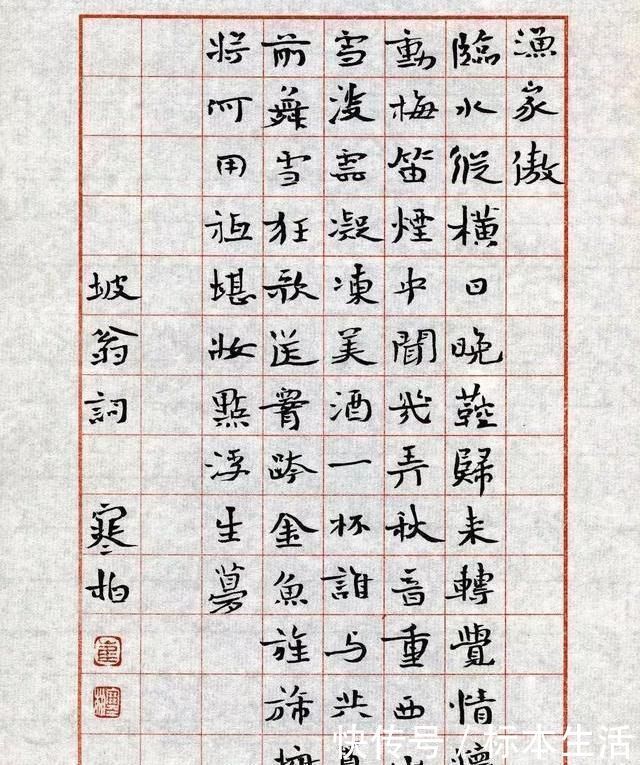 漁家傲
臨水縱橫回晚鞚歸来轉覺情懷
動梅笛煙中聞幾弄秋音重西山
雪淡雲凝凍美酒一杯誰与共尊
前舞雪狂歌送腰跨金魚旌旆擁
將何用祗堪妝點浮生夢
坡翁詞 寒柏
快传号 / 标本生活